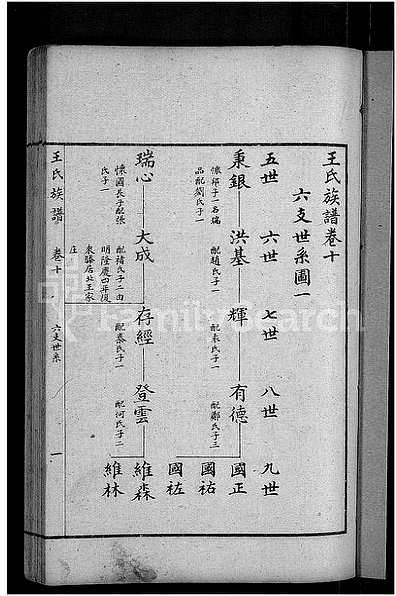 王氏族譜卷十
六支世系圖一
五世 六世 七世 八世 九世
秉銀 洪基 輝 有德 國正
國祐
國祛
懷邦子一名瑞品配劉氏子一
配趙氏子一
配袁氏子一
配鄭氏子三
瑞心 大成 存經 登雲 維森
維林
懷國長子配張氏子一
配褚氏子二由明隆慶四年復東滕居北王家庄
配秦氏子一
配河氏子二
王氏族譜 卷十 六支世系 一
FamilySearch